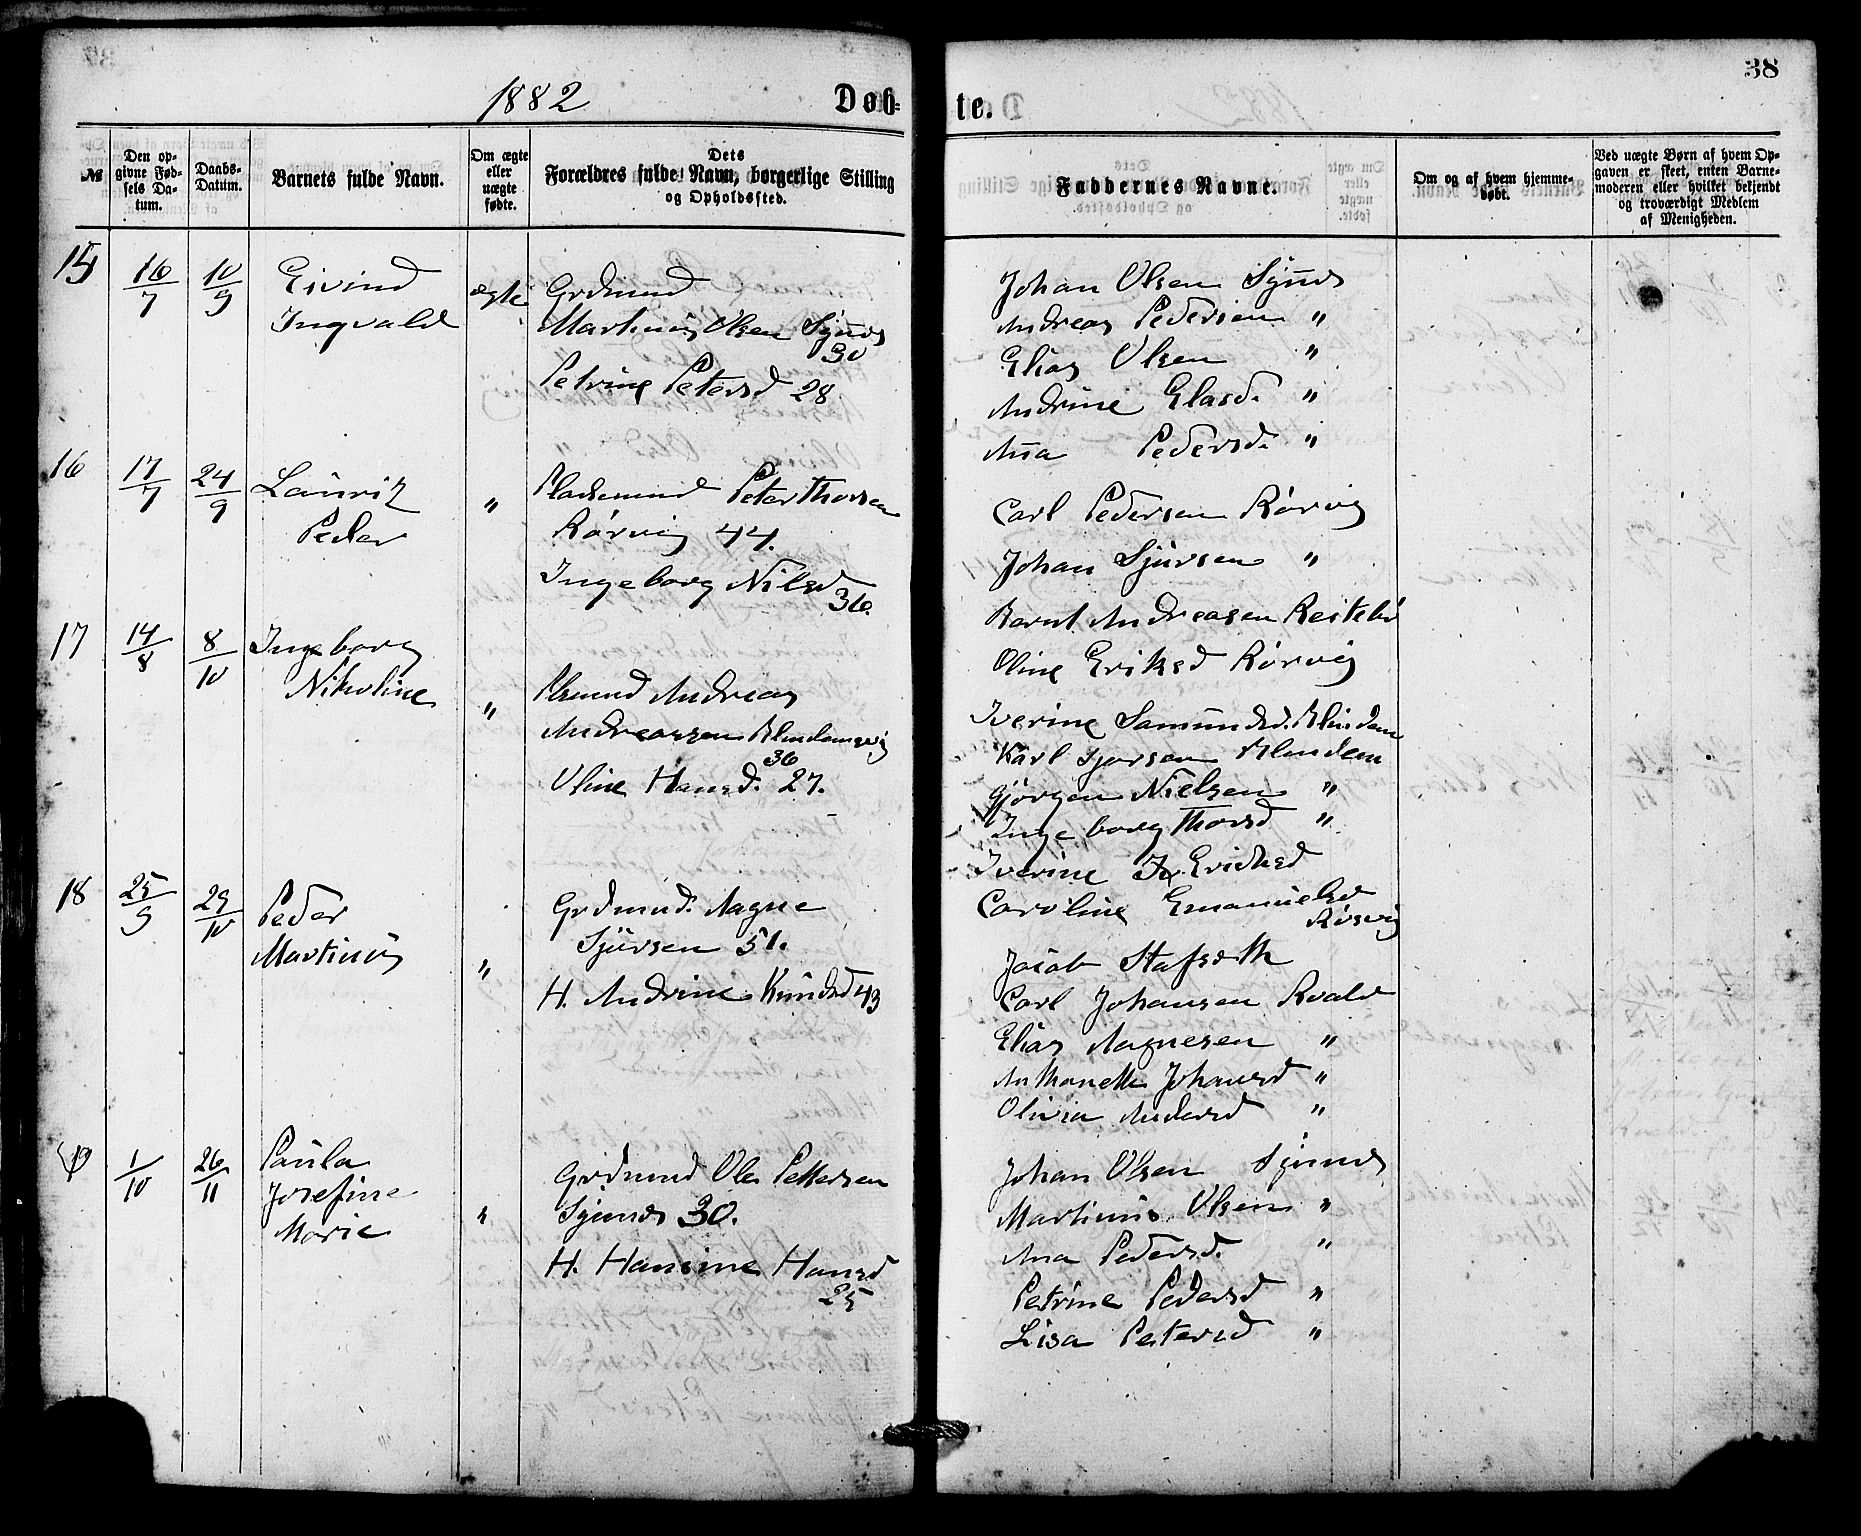 1882
Døb-
№
Den op-
givne Fød-
sels Da-
tum.
Daabs-
Datum.
Barnets fulde Navn.
Om ægte
eller
uægte
fødte.
Dets
Forældres fulde Navn, borgerlige Stilling
og Opholdssted.
15
16/7
10/9
Eivind
Ingvald
ægte
Grdmand
Martinus Olsen Synes
30
Petrine Petersd 28
16
17/7
24/9
Lauritz
Peder
"
Pladsmand Peter Thorsen
Rørvig 44.
Ingeborg Nilsd
36.
17
14/8
8/10
Ingeborg
Nikoline
"
Andreas
Andreassen Blindemsvig
36
Oline Hansd. 27.
18
25/9
29/10
Peder
Martinus
"
Grdmand. Magne
Sjursen 51.
H. Andrine Knudsd 43
19
1/10
26/11
Paula
Josefine
Marie
"
Grdmand Ole Pettersen
Synes 30.
H. Hansine Hansd
25
38
te.
Faddernes Navne.
Om og af hvem hjemme-
døbt.
Ved uægte Børn af hvem Op-
gaven er skeet, enten Barne-
moderen eller hvilket bekjendt
og troværdigt Medlem
af Menigheden.
Johan Olsen Synes
Andreas Pedersen "
Elias Olsen "
Andrine Elasd. "
Anna Pedersd. "
Carl Pedersen Rørvig
Johan Sjursen "
Bernt Andreasen Reitebø
Oline Eriksd Rørvig
Iverine Samundsd. Blindem
Karl Sjursen Blindem
Gjørgen Nielsen "
Ingeborg Thorsd "
Iverine Eriksd
Caroline Emanuelsd
Rørvig
Jacob Stafseth
Carl Johansen Roald
Elias Magnesen "
Anthonette Johansd "
Olivia Andersd "
Johan Olsen Synnes
Martinus Olsen "
Ana Pedersd. "
Petrine Pedersd "
Lisa Petersd "